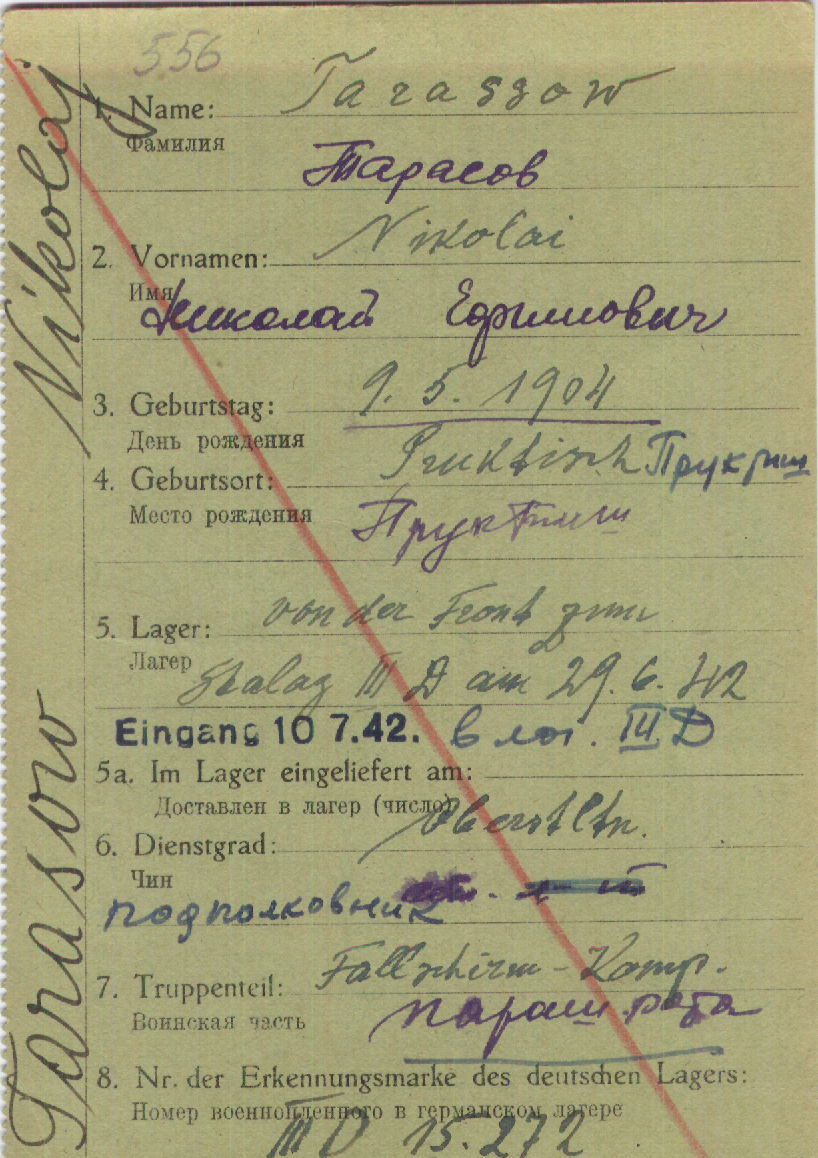 556
Nikolaj
Tarasow
1. Name: Tarassow
Фамилия
Тарасов
2. Vornamen: Nikolai
Имя
Николай Ефимович
3. Geburtstag: 9. 5. 1904
День рождения
4. Geburtsort: Pruktisch
Место рождения
5. Lager: von der Front zum
Лагер
Stalag III D am 29. 6. 42
Eingang 10 7.42. в лаг. III D
5a. Im Lager eingeliefert am:
Доставлен в лагер (число)
6. Dienstgrad: Oberstltn.
Чин
подполковник
7. Truppenteil: Fallschirm - Komp.
Воинская часть
параш. рота
8. Nr. der Erkennungsmarke des deutschen Lagers:
Номер военнопленного в германском лагере
III D 15.272